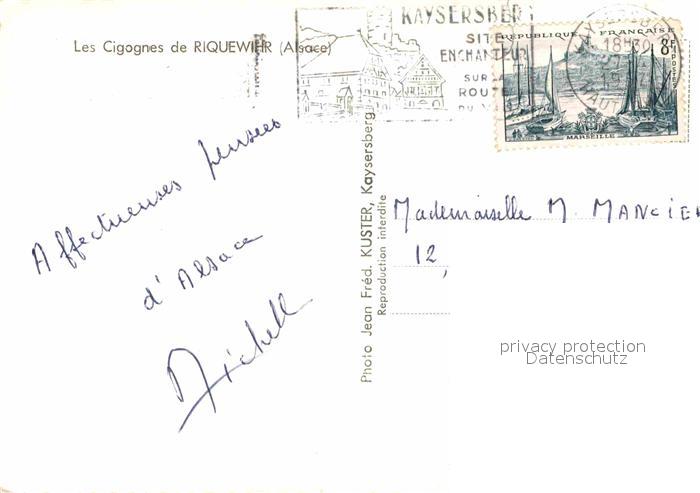 Les Cigognes de RIQUEWIHR (Alsace)
KAYSERSBERG
SITE
ENCHANTEUR
SUR LA
ROUTE
DU
REPUBLIQUE FRANÇAISE
8F
POSTES
MARSEILLE
KAYSERSBERG
18H30
Affectueuses pensées
d'Alsace
Michell
Photo Jean Fréd. KUSTER, Kaysersberg
Reproduction interdite
Mademoiselle M. MANCIE
12,
privacy protection
Datenschutz